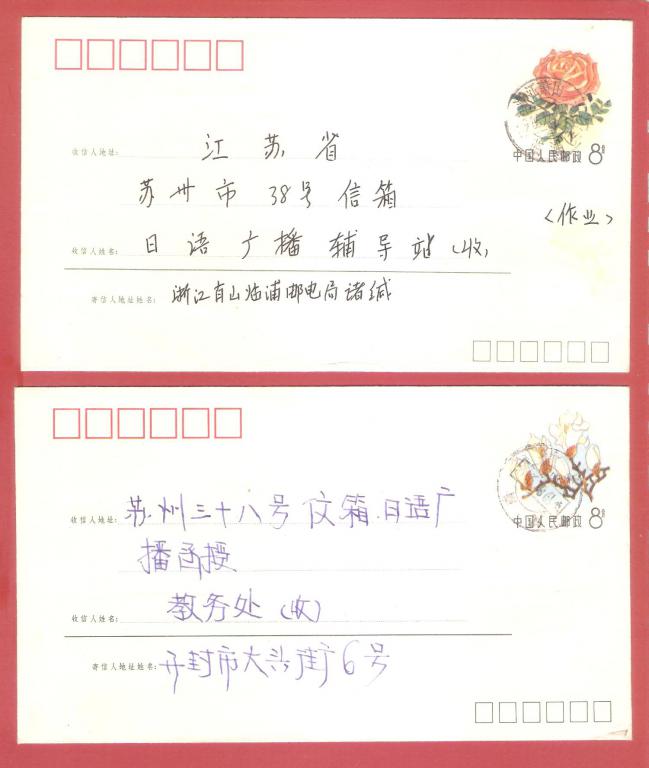 收信人地址: 江苏省
中国人民邮政 8分
苏州市 38号信箱
〈作业〉
收信人姓名: 日语广播辅导站(收)
寄信人地址姓名: 浙江省山临浦邮电局诸缄
中国人民邮政 8分
收信人地址: 苏州三十八号仪箱.日语广
播函授
收信人姓名: 教务处(收)
寄信人地址姓名: 开封市大兴街6号